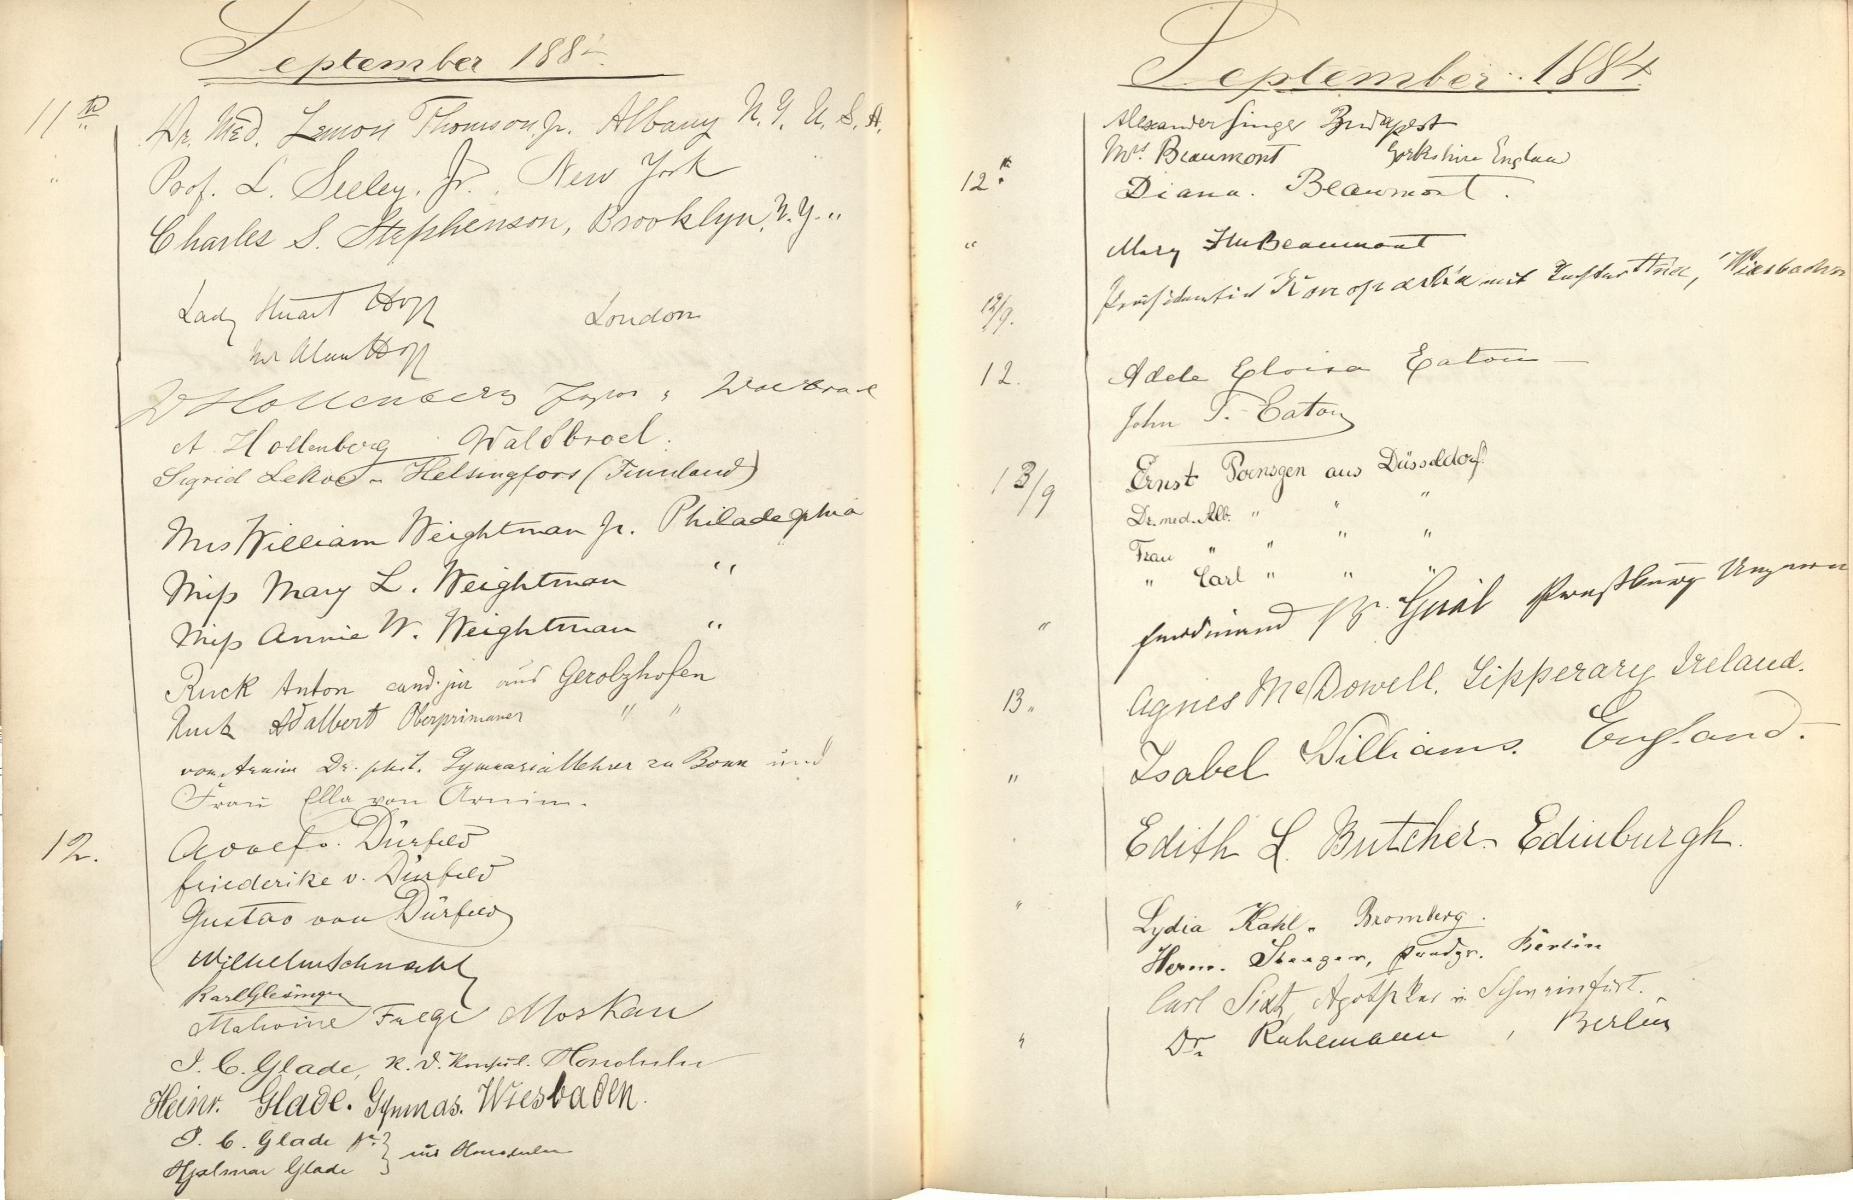 September 188
11th
Dr. Med. Lemon Thomson, Jr. Albany N. Y. U. S. A.
" Prof. L. Seeley, Jr. New York
Charles S. Stephenson, Brooklyn, N. Y. "
Lady Stuart Hogg London
Hogg
Hollenberg
A. Hollenberg Waldbroel.
Sigrid Helsingfors (Finnland)
Mrs William Weightman Jr. Philadelphia
Miss Mary L. Weightman "
Miss Annie W. Weightman "
Ruck Anton cand. jur aus Gerolzhofen
Ruck Adalbert Oberprimaner " "
von Arnim Dr. phil. Gymnasiallehrer zu Bonn und
Frau Ella von Arnim.
12. Adolf v. Dürfeld
Friederike v. Dürfeld
Gustav von Dürfeld
Wilhelm
Karl
Malwine Moskau
J. C. Glade, K. D. Konsul. Honolulu
Heinr. Glade. Gymnas. Wiesbaden.
J. C. Glade Jr. } aus Honolulu
Hjalmar Glade
September 1884
Alexander Singer Budapest
Mrs Beaumont Yorkshire England
12th Diana. Beaumont.
" Mary Beaumont
12/9. mit Wiesbaden
12. Adele Eloisa Eaton
John T. Eaton
13/9 Ernst Poensgen aus Düsseldorf.
Dr. med. Alb. " " "
Frau " " " "
" Carl " " "
" Ferdinand Pressburg Ungarn
13 " Agnes McDowell. Tipperary Ireland.
" Isabel Williams. England.
Edith L. Butcher Edinburgh.
" Lydia Kahl. Bromberg.
Herm. Berlin
Carl Sixt, Apotheker in Schweinfurt.
" Dr. Ruhemann, Berlin